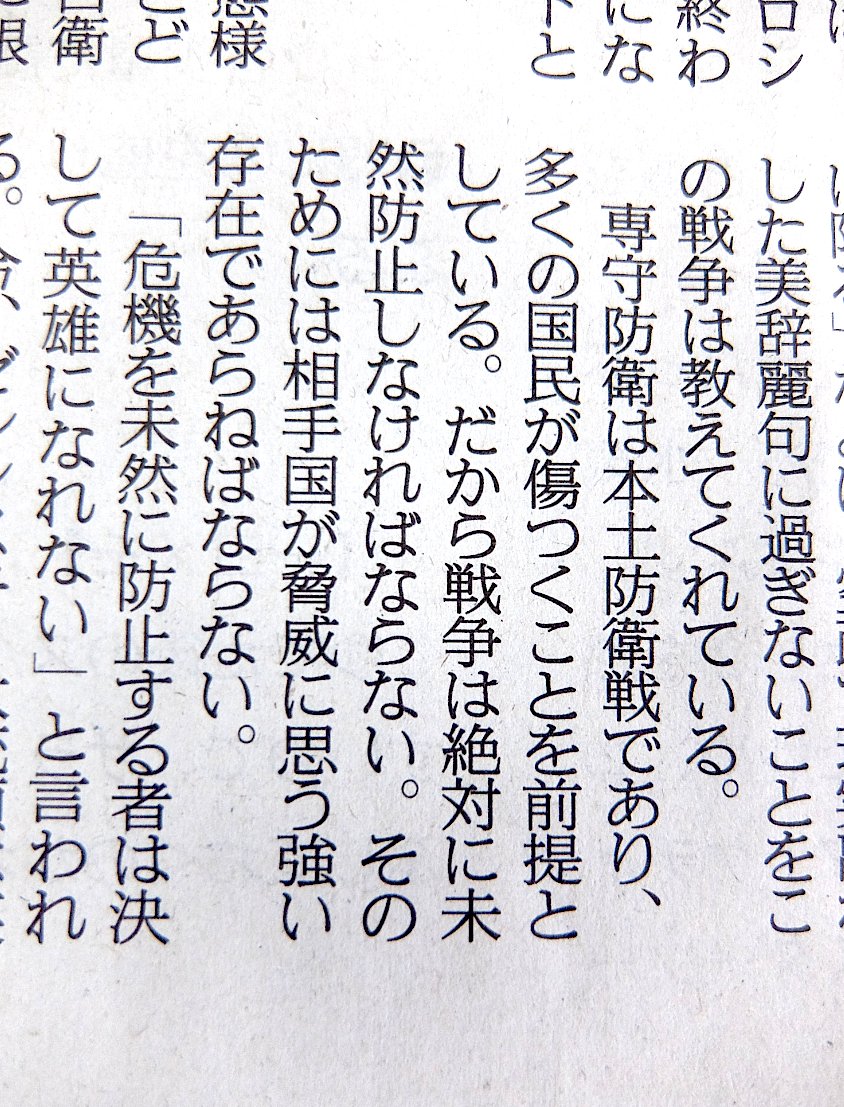 ロシ
終わ
にな
トと
態様
など
自衛
した美辞麗句に過ぎないことをこ
の戦争は教えてくれている。
専守防衛は本土防衛戦であり、
多くの国民が傷つくことを前提と
している。だから戦争は絶対に未
然防止しなければならない。その
ためには相手国が脅威に思う強い
存在であらねばならない。
「危機を未然に防止する者は決
して英雄になれない」と言われ
る。今、